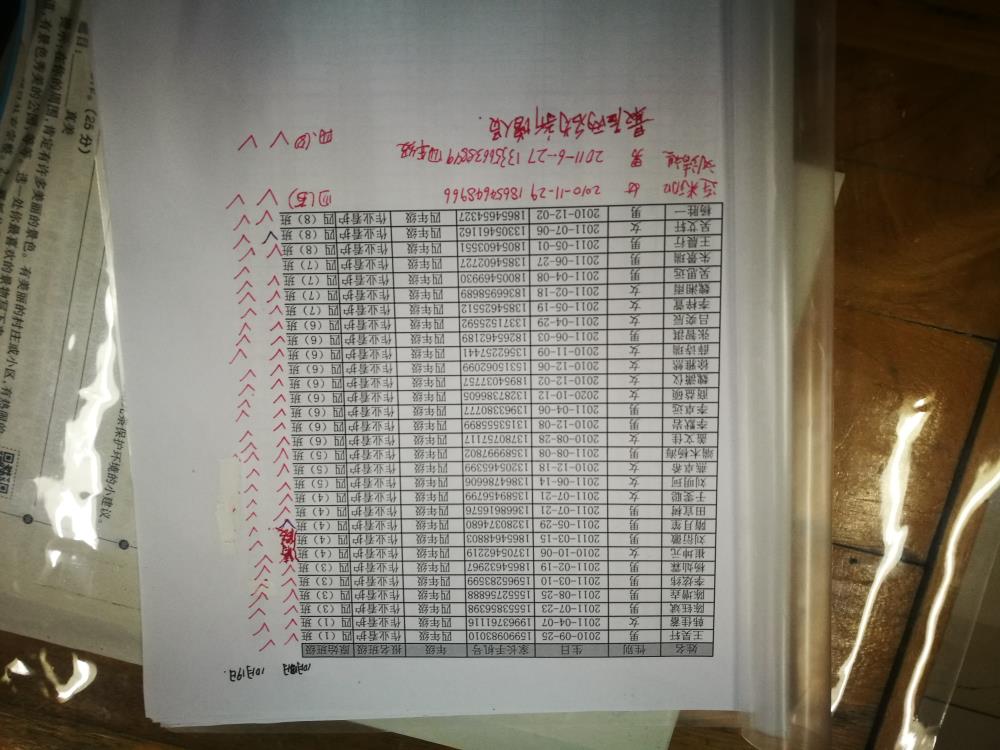 10月18日 10月19日.
姓名 性别 生日 家长手机号 年级 报名班级 原始班级
王昊轩 男 2010-09-25 15990983010 四年级 作业看护 四（1）班
韩佳蓄 女 2011-04-07 19963761116 四年级 作业看护 四（1）班
陈钰斌 男 2011-07-23 15553558398 四年级 作业看护 四（3）班
陈增垚 男 2011-08-25 15552756888 四年级 作业看护 四（3）班
李炫炜 男 2011-03-10 15966283599 四年级 作业看护 四（3）班
杨灿霖 男 2011-02-19 18654632967 四年级 作业看护 四（3）班
崔坤元 女 2010-10-06 13705466219 四年级 作业看护 四（4）班
刘衍徽 男 2011-03-15 18654648803 四年级 作业看护 四（4）班
隋月笙 男 2011-05-29 13280374680 四年级 作业看护 四（4）班
田宜树 男 2011-07-21 13668616576 四年级 作业看护 四（4）班
于雯聪 女 2011-07-21 13589456799 四年级 作业看护 四（4）班
刘明珂 女 2011-06-14 13864786606 四年级 作业看护 四（5）班
燕卓希 女 2010-12-18 13205465399 四年级 作业看护 四（5）班
端木杨海 男 2011-08-08 13589997802 四年级 作业看护 四（5）班
盖文佳 女 2010-08-28 13780757117 四年级 作业看护 四（6）班
李默岩 男 2010-12-08 15315355899 四年级 作业看护 四（6）班
李卓远 男 2011-04-06 13963380777 四年级 作业看护 四（6）班
商益硕 女 2020-10-12 13287386605 四年级 作业看护 四（6）班
魏潇仪 女 2010-12-02 18954037757 四年级 作业看护 四（6）班
徐雅然 女 2010-12-06 15315062099 四年级 作业看护 四（6）班
薛诗瑞 女 2010-11-09 13562257441 四年级 作业看护 四（6）班
张智淇 男 2011-06-03 18265462189 四年级 作业看护 四（6）班
吕奕辰 女 2011-04-29 13371525592 四年级 作业看护 四（6）班
李梓萱 女 2011-05-19 13854625512 四年级 作业看护 四（7）班
魏湘雨 女 2011-02-18 18366958689 四年级 作业看护 四（7）班
吴思远 男 2011-04-08 18005469930 四年级 作业看护 四（7）班
朱景瑞 男 2011-06-27 13854602727 四年级 作业看护 四（7）班
王晨行 男 2011-05-01 18054603551 四年级 作业看护 四（8）班
吴艾轩 女 2011-07-06 13305461162 四年级 作业看护 四（8）班
杨胜一 男 2010-12-02 18654654327 四年级 作业看护 四（8）班
女 2010-11-29 18654648966 四(五)
男 2011-6-27 13356638849 四年级 四.(四)
最后两名为新增人员.
题目：
（25分）
真美
有许多美丽的景色。有美丽的村庄或小区，有热闹的
有景色秀美的公园、果园。选一处你最喜欢的景物写下来
条保护环境的小建议。